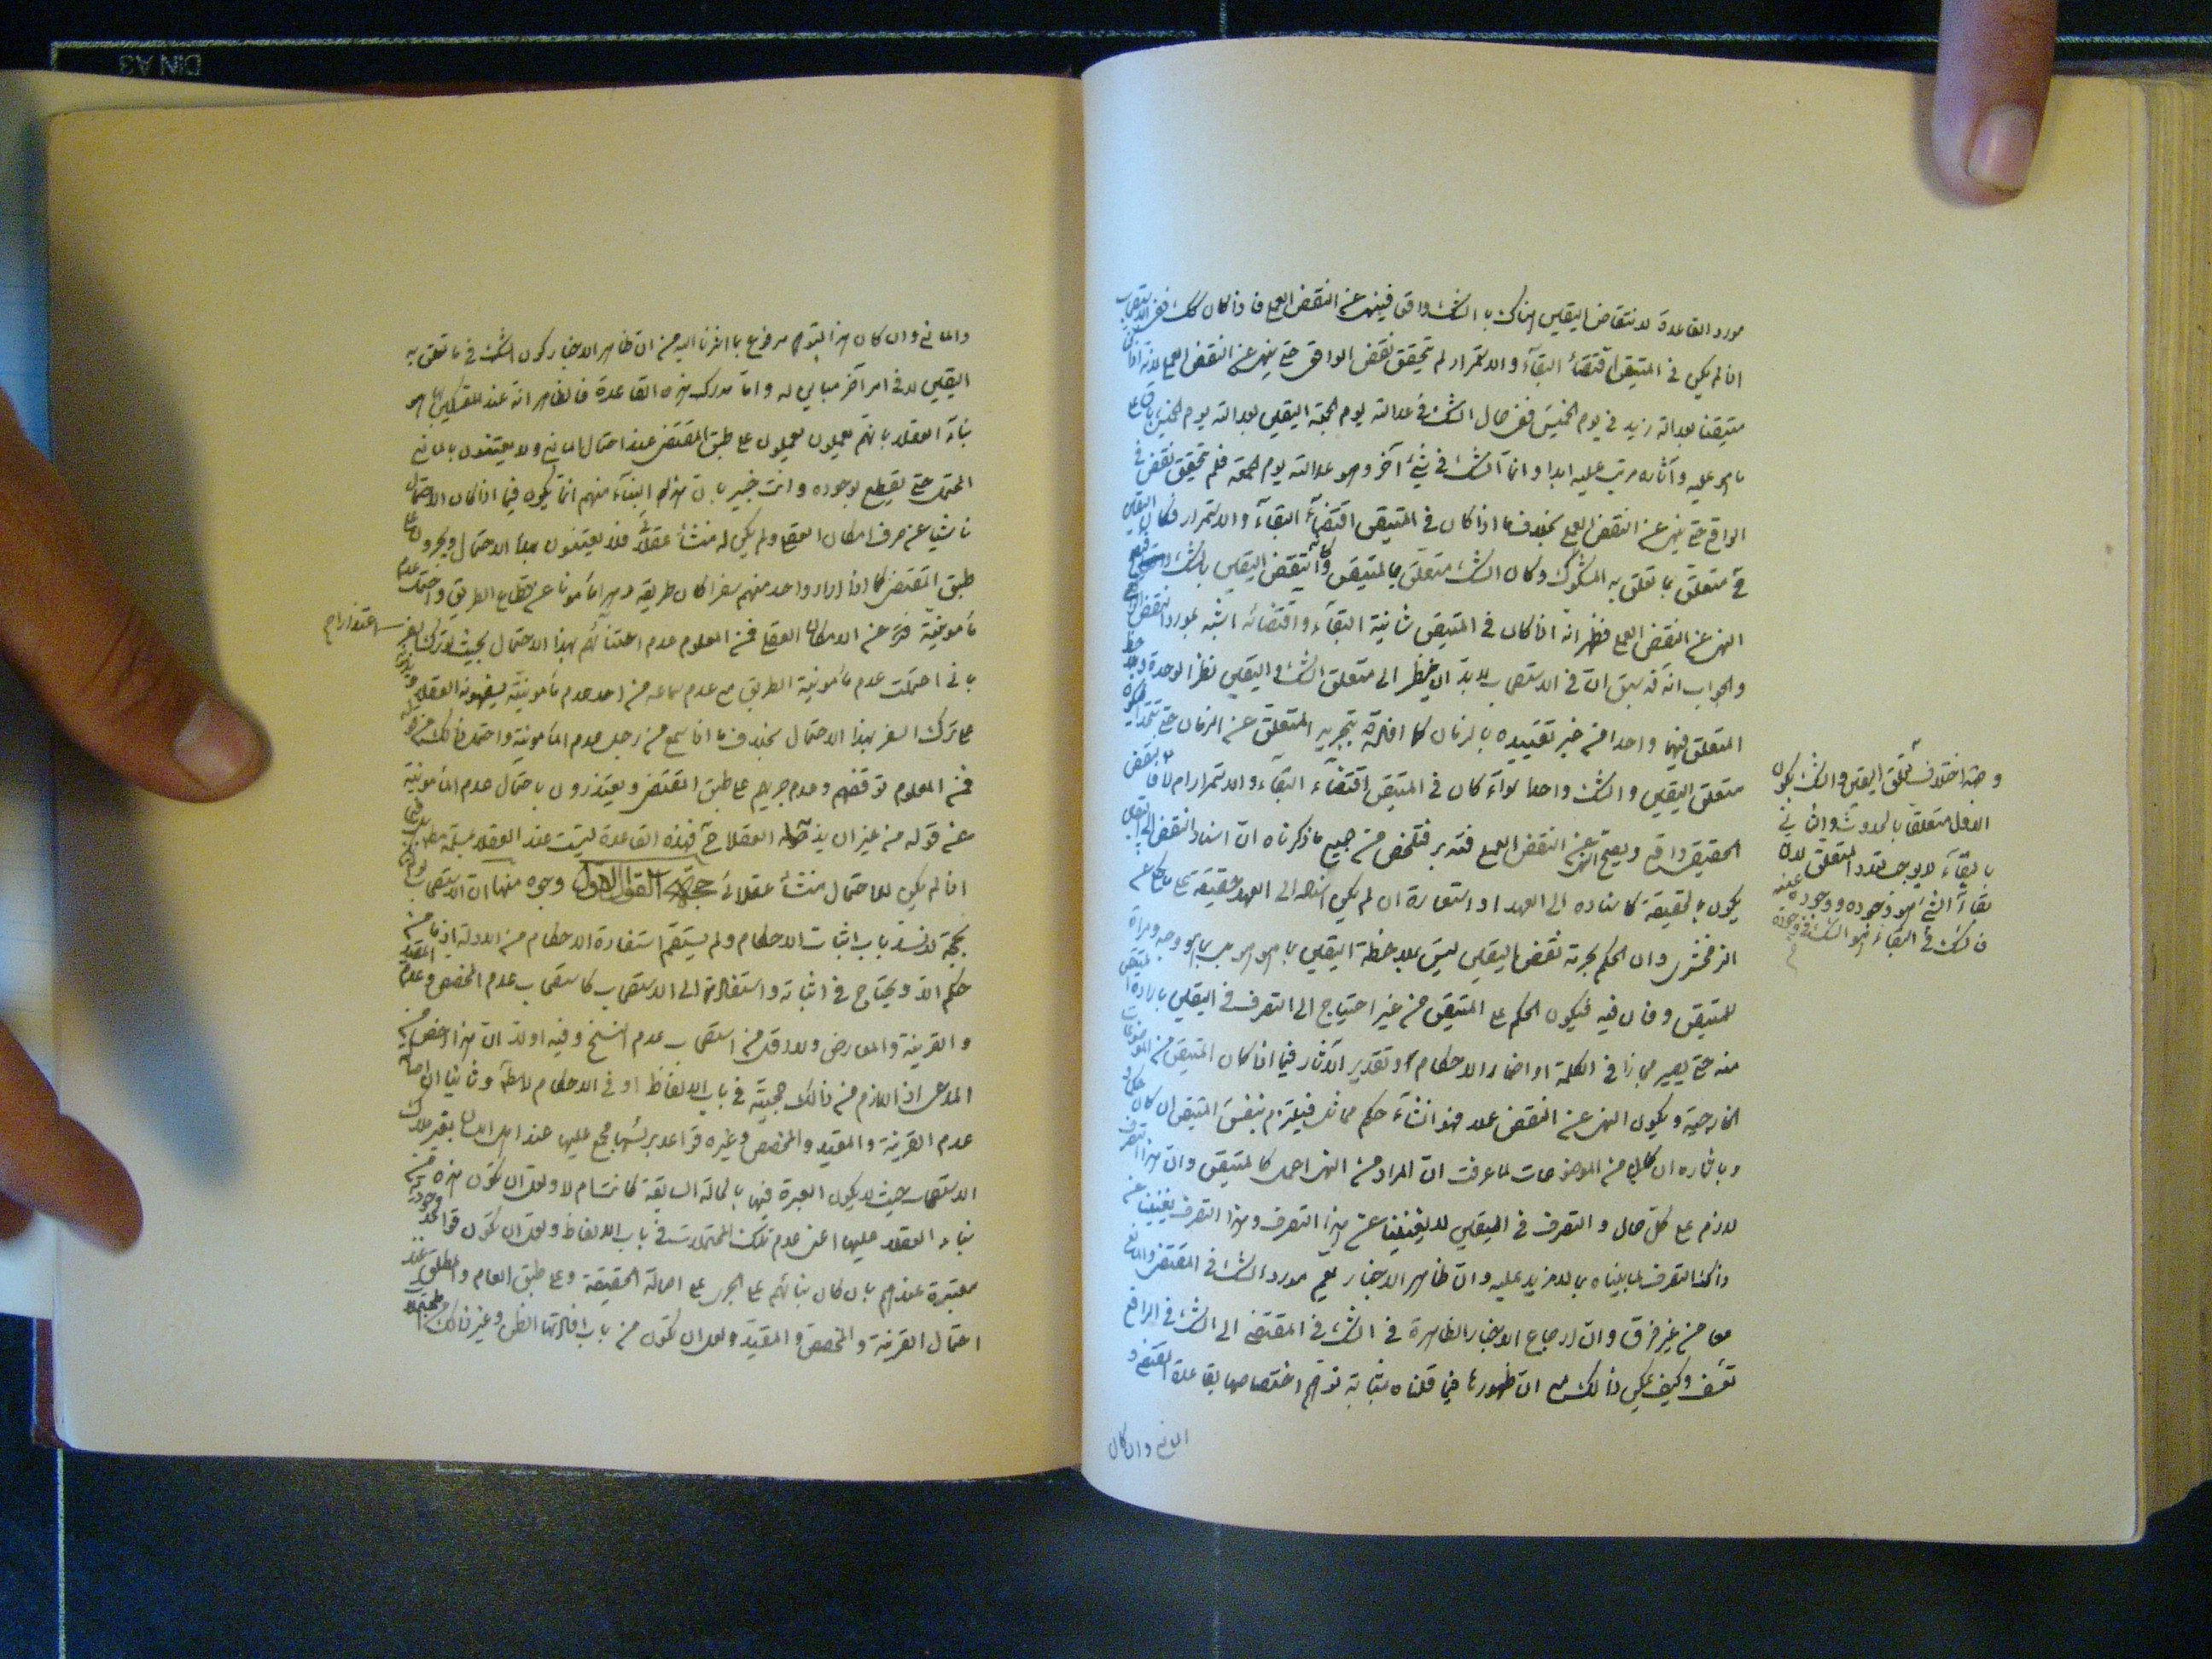 مورد القاعدة لانتقاض اليقين هناك بالشك واقعا فينهى عن النقض العملى فاذا كان كك ففى الاستصحاب
ان لم يكن فى المتيقن اقتضاء البقاء والاستمرار لم يتحقق نقض الواقى حتى ينهى عن النقض العملى لانه اذا كنا
متيقنا بعدالة زيد فى يوم الخميس ففى حال الشك فى عدالته يوم الجمعة اليقين بعدالته يوم الخميس باق على
ما هو عليه وآثاره مرتب عليه ابدا وانما الشك فى شئ آخر وهو عدالته يوم الجمعة فلم يتحقق نقض فى
الواقع حتى ينهى عن النقض العملى بخلاف ما اذا كان فى المتيقن اقتضاء البقاء والاستمرار فكان اليقين
ح متعلق بما تعلق به المشكوك وكان الشك متعلق بالمتيقن وانتقض اليقين بالشك
النهى عن النقض العملى فظهر انه اذا كان فى المتيقن شانية البقاء واقتضائه اشبه بمورد النقض
والجواب انه قد سبق ان فى الاستصحاب لابد ان ينظر الى متعلق الشك واليقين نظر الوحدة
المتعلق فيهما واحدا من غير تقييده بالزمان كما افاده بتجريد المتعلق عن الزمان حتى يتحد
متعلق اليقين والشك واحدا سواء كان فى المتيقن اقتضاء البقاء والاستمرار ام لا
الحقيقى واقع ويصح النهى عن النقض العملى فتدبر فتلخص من جميع ما ذكرناه ان اسناد النقض الى اليقين
يكون بالحقيقة كاسناده الى العهد او استعارة ان لم يكن اسناده الى العهد حقيقة على ما حكى عن
الزمخشرى وان الحكم بحرمة نقض اليقين ليس بملاحظة اليقين بما هو هو بل بما هو وجه ومرآة
للمتيقن وفان فيه فيكون الحكم على المتيقن من غير احتياج الى التصرف فى اليقين بارادة المتيقن
منه حتى يصير مجازا فى الكلمة او اضمار الاحكام او تقدير الآثار فيما اذا كان المتيقن من الموضوعات
الخارجية ويكون النهى عن النقض عملا فهو انشاء حكم مماثل فيلتزم بنفس المتيقن ان كان حكما
وبآثاره ان كان من الموضوعات لما عرفت ان المراد من النهى العمل كالمتيقن وان هذا التصرف
لازم على كل حال والتصرف فى اليقين لا يغنينا عن هذا التصرف وهذا التصرف يغنينا عن
ذاك التصرف لما بيناه بما لا مزيد عليه وان ظاهر الاخبار يعم مورد الشك فى المقتضى والمانع
معا من غير فرق وان ارجاع الاخبار الظاهرة فى الشك فى المقتضى الى الشك فى الرافع
تعسف وكيف يمكن ذلك مع ان ظهورها فيما قلناه بمثابة توهم اختصاصها بقاعدة المقتضى و
المانع وان كان
وجهة اختلاف تعلق اليقين والشك بكون
الاول متعلقا بالحدوث والثانى
بالبقاء لا يوجب تعدد المتعلق لان
بقاء الشئ هو وجوده ووجوده عينه
فالشك فى البقاء هو الشك فى وجوده
والمانع وان كان هذا التوهم مرفوع بما اشرنا اليه من ان ظاهر الاخبار كون الشك فى ما تعلق به
اليقين لا فى امر آخر مباين له واما مدرك هذه القاعدة فالظاهر انه عند القائلين بها هو
بناء العقلاء بانهم يعملون يعملون على طبق المقتضى عند احتمال المانع ولا يعتنون بالمانع
المحتمل حتى يقطع بوجوده وانت خبير بان هذا البناء منهم انما يكون فيما اذا كان الاحتمال
ناشيا عن صرف امكان العقلى ولم يكن له منشأ عقلائى فلا يعتنون بهذا الاحتمال ويجرون على
طبق المقتضى كما اذا اراد واحد منهم سفرا كان طريقه مأمونا عن قطاع الطريق واحتمل عدم
مأمونيته عن الامكان العقلى فمن المعلوم عدم اعتنائهم بهذا الاحتمال بحيث لو ترك السفر اعتذارا
بانى احتملت عدم مأمونية الطريق مع عدم سماعه من احد عدم مأمونيته يسفهونه العقلاء
على ترك السفر بهذا الاحتمال بخلاف ما اذا سمع من رجل عدم المأمونية واحتمل ذلك من
فمن المعلوم توقفهم وعدم جريهم على طبق المقتضى ويعتذرون باحتمال عدم المأمونية
عن قوله من غير ان يذمه العقلاء ح فهذه القاعدة ليست عند العقلاء مسلمة
اذا لم يكن للاحتمال منشأ عقلائى حجة القول الاول وجوه منها ان الاستصحاب لو لم يكن
بحجة لانسد باب اثبات الاحكام ولم يستقم استفادة الاحكام من الادلة اذ ما من
حكم الا ويحتاج فى اثباته واستفادته الى الاستصحاب كاستصحاب عدم المخصص وعدم المقيد
والقرينة والمعارض ولا اقل من استصحاب عدم النسخ وفيه اولا ان هذا اخص من
المدعى اذ اللازم من ذلك حجيته فى باب الالفاظ او فى الاحكام لا مطلقا وثانيا ان اصالة
عدم القرينة والمقيد والمخصص وغيره قواعد برأسها مجمع عليها عند اهل اللسان بغير ملاك
الاستصحاب حيث لا يكون العبرة فيها بالحالة السابقة كانت ام لا ولعل ان تكون هذه من
بناء العقلاء عليها اعنى عدم تلك المحتملات فى باب الالفاظ ولعل ان تكون قواعد
معتبرة عندهم بان كان بنائهم على الجرى على اصالة الحقيقة وعلى طبق العام والمطلق عند
احتمال القرينة والمخصص والمقيد ولعل ان تكون من باب افادتها الظن وغير ذلك